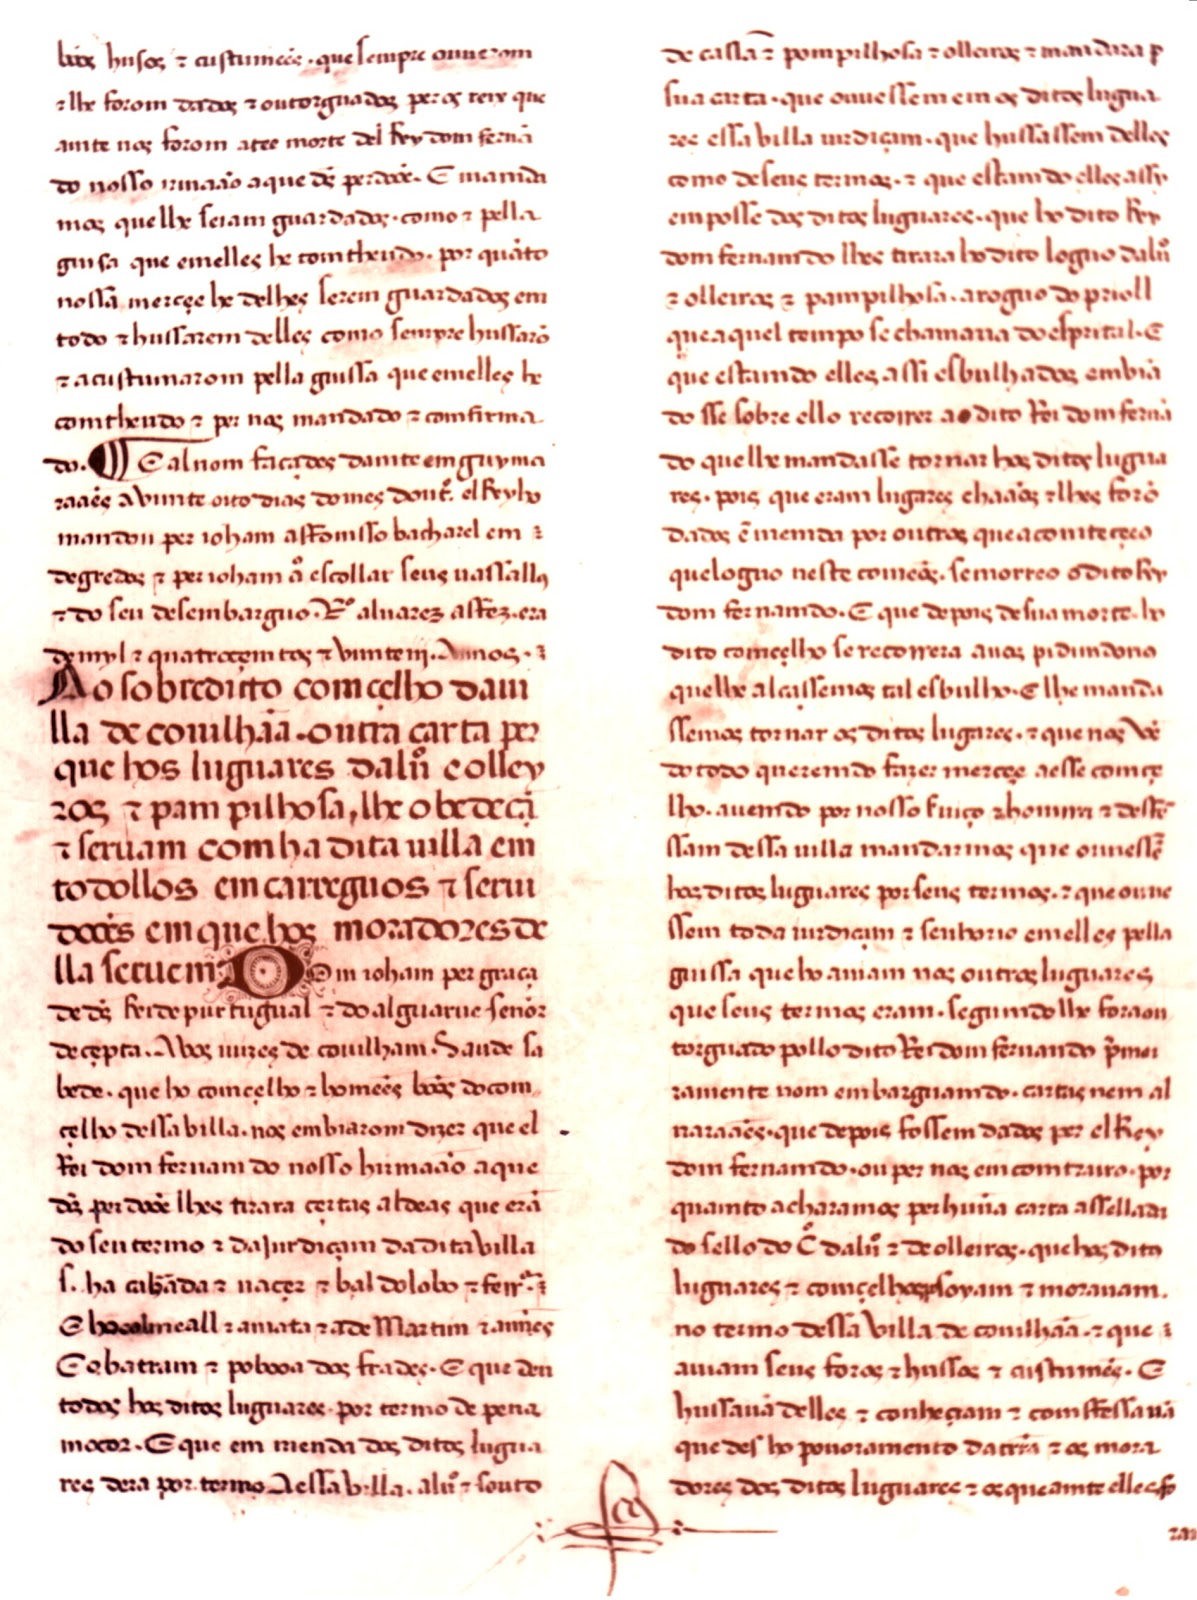 bõos husos ⁊ custumeẽs. que sempre ouuerom
⁊ lhe forom dados ⁊ outorguados per os reix que
ante nos forom atee morte del Rey dom fernã
do nosso irmaão a que ds̃ perdoẽ. E manda
mos que lhe seiam guardados. como ⁊ pella
guisa que em elles he comtheudo. por quãto
nossa merçee he delhes serem guardados em
todo ⁊ hussarem delles como sempre hussarõ
⁊ acustumarom pella guissa que em elles he
comtheudo ⁊ per nos mandado ⁊ comfirma
do. E al nom façades damte em guyma
raaẽs a vinte oito dias do mes dout.º el Rey ho
mandou per ioham affomsso bacharel em
degredos ⁊ per ioham ã escollar seus uassallos
⁊ do seu desembarguo. Rº aluarez a fez. era
de myl ⁊ quatroçemtos ⁊ vimte iij. Annos.
Ao sobredicto comçelho da ui
lla de couilhãa. outra carta per
que hos luguares daluº e olley
ros ⁊ pampilhosa, lhe obedeçã
⁊ seruam com ha dita uilla em
todollos emcarreguos ⁊ serui
dõoẽs em que hos moradores de
lla seruem Dom ioham per graça
de ds̃ Rei de purtugual ⁊ do alguarue señor
de çepta. A vos iuizes de couilham. Saude sa
bede. que ho comçelho ⁊ homeẽs bõos do com
çelho dessa villa. nos embiarom dizer que el
Rei dom fernamdo nosso hirmaão a que
ds̃ perdooẽ lhes tirara çertas aldeas que erã
do seu termo ⁊ da jurdiçam da dita villa
s. ha cabãada ⁊ uaçer ⁊ bal do lobo ⁊ ferrª
E ho colmeall ⁊ a mata ⁊ a de Martim ⁊ annes
E quatram ⁊ pobooa dos frades. E que deu
todos hos ditos luguares por termo de pena
mocor. E que em menda dos ditos lugua
res dera por termo A essa villa. aluº ⁊ souto
de cassaẽ ⁊ pompilhosa ⁊ olleiros ⁊ mandara p
sua carta. que ouuessem em os ditos lugua
res essa villa iurdiçam. que hussassem delles
como de seus termos. ⁊ que estamdo elles assy
em posse dos ditos luguares. que ho dito Rey
dom fernamdo lhes tirara ho dito loguo daluº
⁊ olleiros ⁊ pampilhosa. a roguo do prioll
que aquel tempo se chamaua do esprital. E
que estamdo elles assi esbulhados embiã
do sse sobre ello recorrer ao dito Rei dom fernã
do que lhe mandasse tornar hos ditos lugua
res. pois que eram lugares chaãos ⁊ lhes forõ
dados ẽ menda por outros que acomteçeo
que loguo neste comeos. se morreo o dito Rey
dom fernamdo. E que depois de sua morte. ho
dito comçelho se recorrera a uos pidimdonos
que lhe alçassemos tal esbulho. E lhe manda
ssemos tornar os ditos lugares. ⁊ que nos vẽ
do todo queremdo fazer merçee a esse comçe
lho. auemdo por nosso seruiço ⁊ homrra ⁊ deffe
ssam dessa uilla mandarmos que ouuessẽ
hos ditos luguares por seus termos. ⁊ que ouue
ssem toda iurdiçam ⁊ senhorio em elles pella
guissa que ho auiam nos outros luguares
que seus termos eram. segumdo lhe fora ou
torguado pollo dito Rei dom fernamdo prĩmei
ramente nom embarguamdo. cartas nem al
uaraaẽs. que depois fossem dados per el Rey
dom fernamdo. ou per nos em comtrairo. por
quamto acharamos per huũa carta assellada
do sello do Cº daluº ⁊ de olleiros. que hos ditos
luguares ⁊ comçelhos soyam ⁊ morauam.
no termo dessa Villa de couilhãa. ⁊ que
auiam seus foros ⁊ hussos ⁊ custumẽs. E
hussauã delles ⁊ conheçiam ⁊ comffessauã
que des ho pouoramento da terra ⁊ os mora
dores dos ditos luguares ⁊ os que amte elles fo
ram